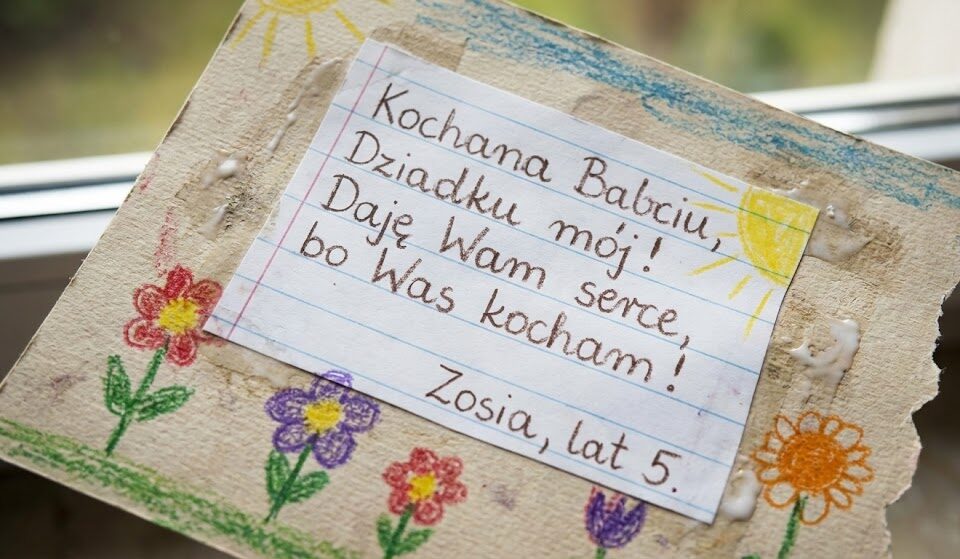 Kochana Babciu,
Dziadku mój!
Daję Wam serce,
bo Was kocham!
Zosia, lat 5.